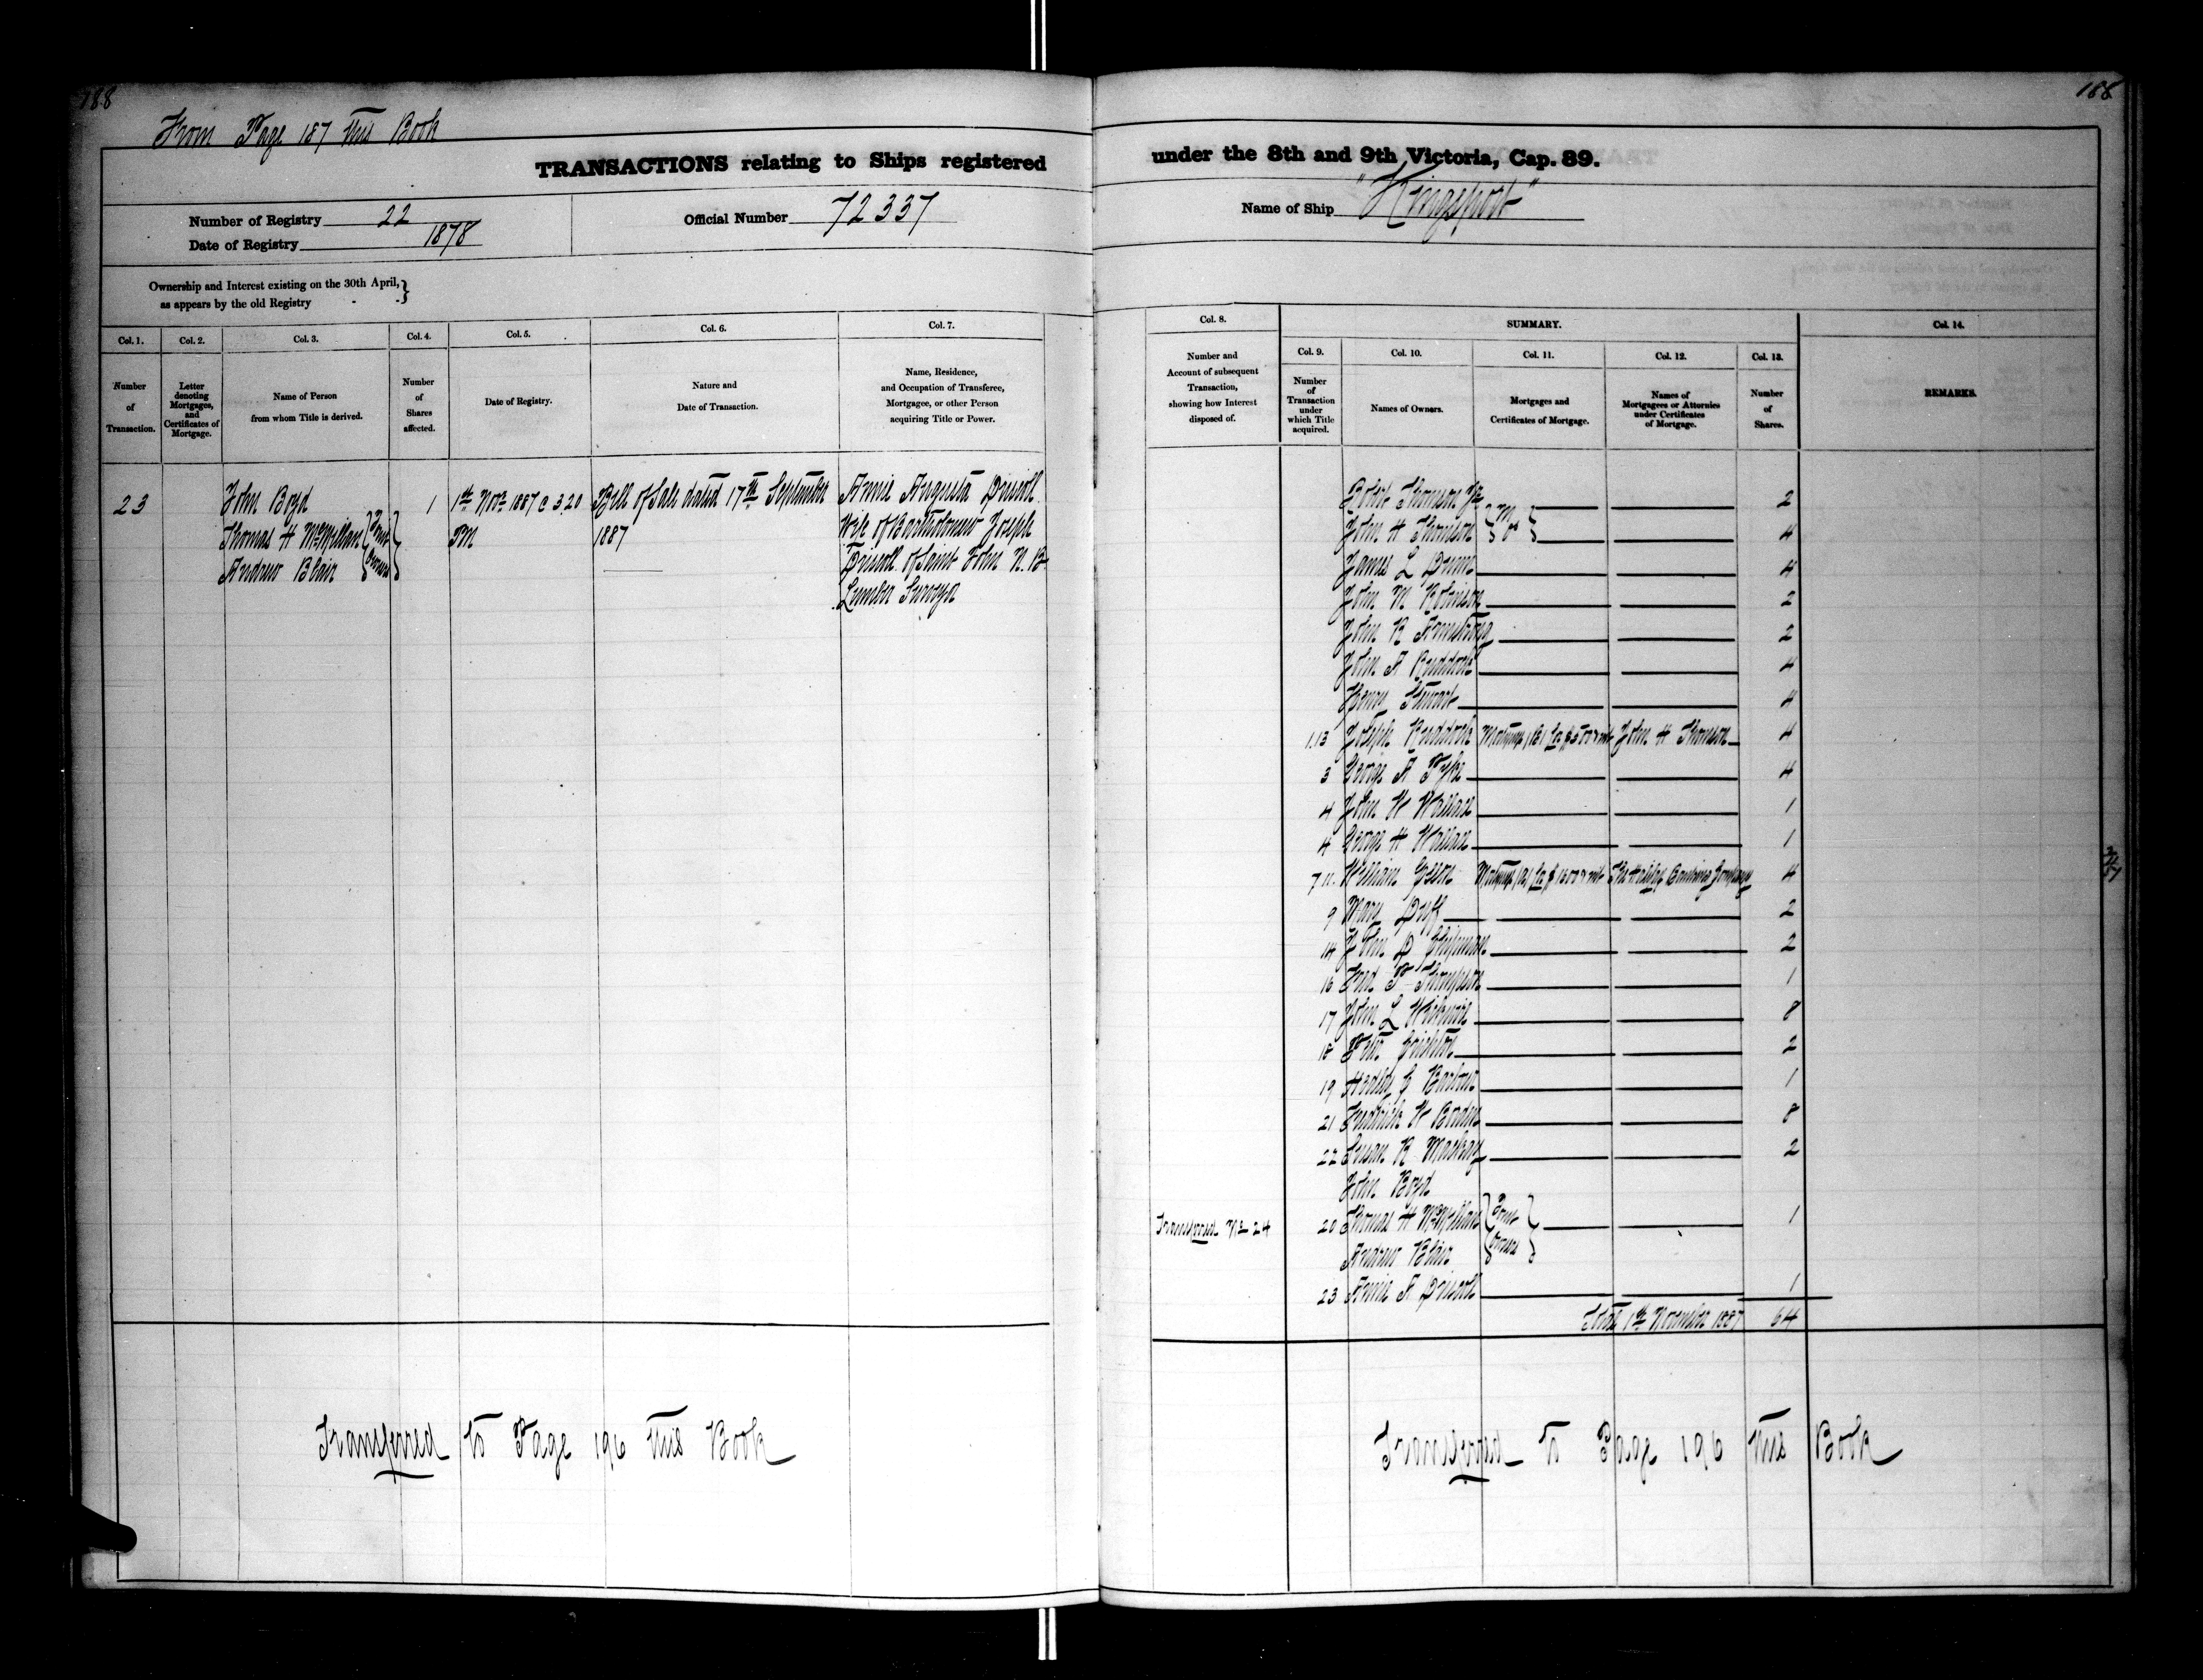 188
188
From Page 187 this Book
TRANSACTIONS relating to Ships registered under the 8th and 9th Victoria, Cap. 89.
Number of Registry 22
Date of Registry 1878
Official Number 72337
Name of Ship "Kingsport"
Ownership and Interest existing on the 30th April,
as appears by the old Registry
Col. 1. Col. 2. Col. 3. Col. 4. Col. 5. Col. 6. Col. 7.
Number of Transaction.
Letter denoting Mortgages, and Certificates of Mortgage.
Name of Person from whom Title is derived.
Number of Shares affected.
Date of Registry.
Nature and Date of Transaction.
Name, Residence, and Occupation of Transferee, Mortgagee, or other Person acquiring Title or Power.
23 John Boyd 1 1st Novr 1887 @ 3.20 Bill of Sale dated 17th September Annie Augusta Driscoll
Thomas H McMillan Joint PM 1887 Wife of Bartholomew Joseph
Andrew Blair Owners Driscoll of Saint John N.B.
Lumber Surveyor
Transferred to Page 196 this Book
Col. 8. SUMMARY. Col. 14.
Col. 9. Col. 10. Col. 11. Col. 12. Col. 13.
Number and Account of subsequent Transaction, showing how Interest disposed of.
Number of Transaction under which Title acquired.
Names of Owners.
Mortgages and Certificates of Mortgage.
Names of Mortgagees or Attornies under Certificates of Mortgage.
Number of Shares.
REMARKS.
Robert Thomson Jr 2
John H Thomson 4
James L Dunn 4
John M Robinson 2
John R Armstrong 2
John A Ruddock 4
Henry Stewart 4
1.13 Joseph Ruddock Mortgage (B) for John H Thomson 4
3 George A 4
4 John W Wallace 1
4 George H Wallace 1
7 11 William Green Mortgage (A) for The Halifax Banking Company 4
9 Mary Duff 2
14 John D Shipman 2
16 Fred P Thompson 1
17 John L Wickwire 8
18 Peter 2
19 Hedley C Barbour 1
21 Fredrick W Borden 8
22 Susan R Mackay 2
John Boyd
Transferred No 24 20 Thomas H McMillan Joint Owners 1
Andrew Blair
23 Annie A Driscoll 1
Total 1st November 1887 64
Transferred to Page 196 this Book